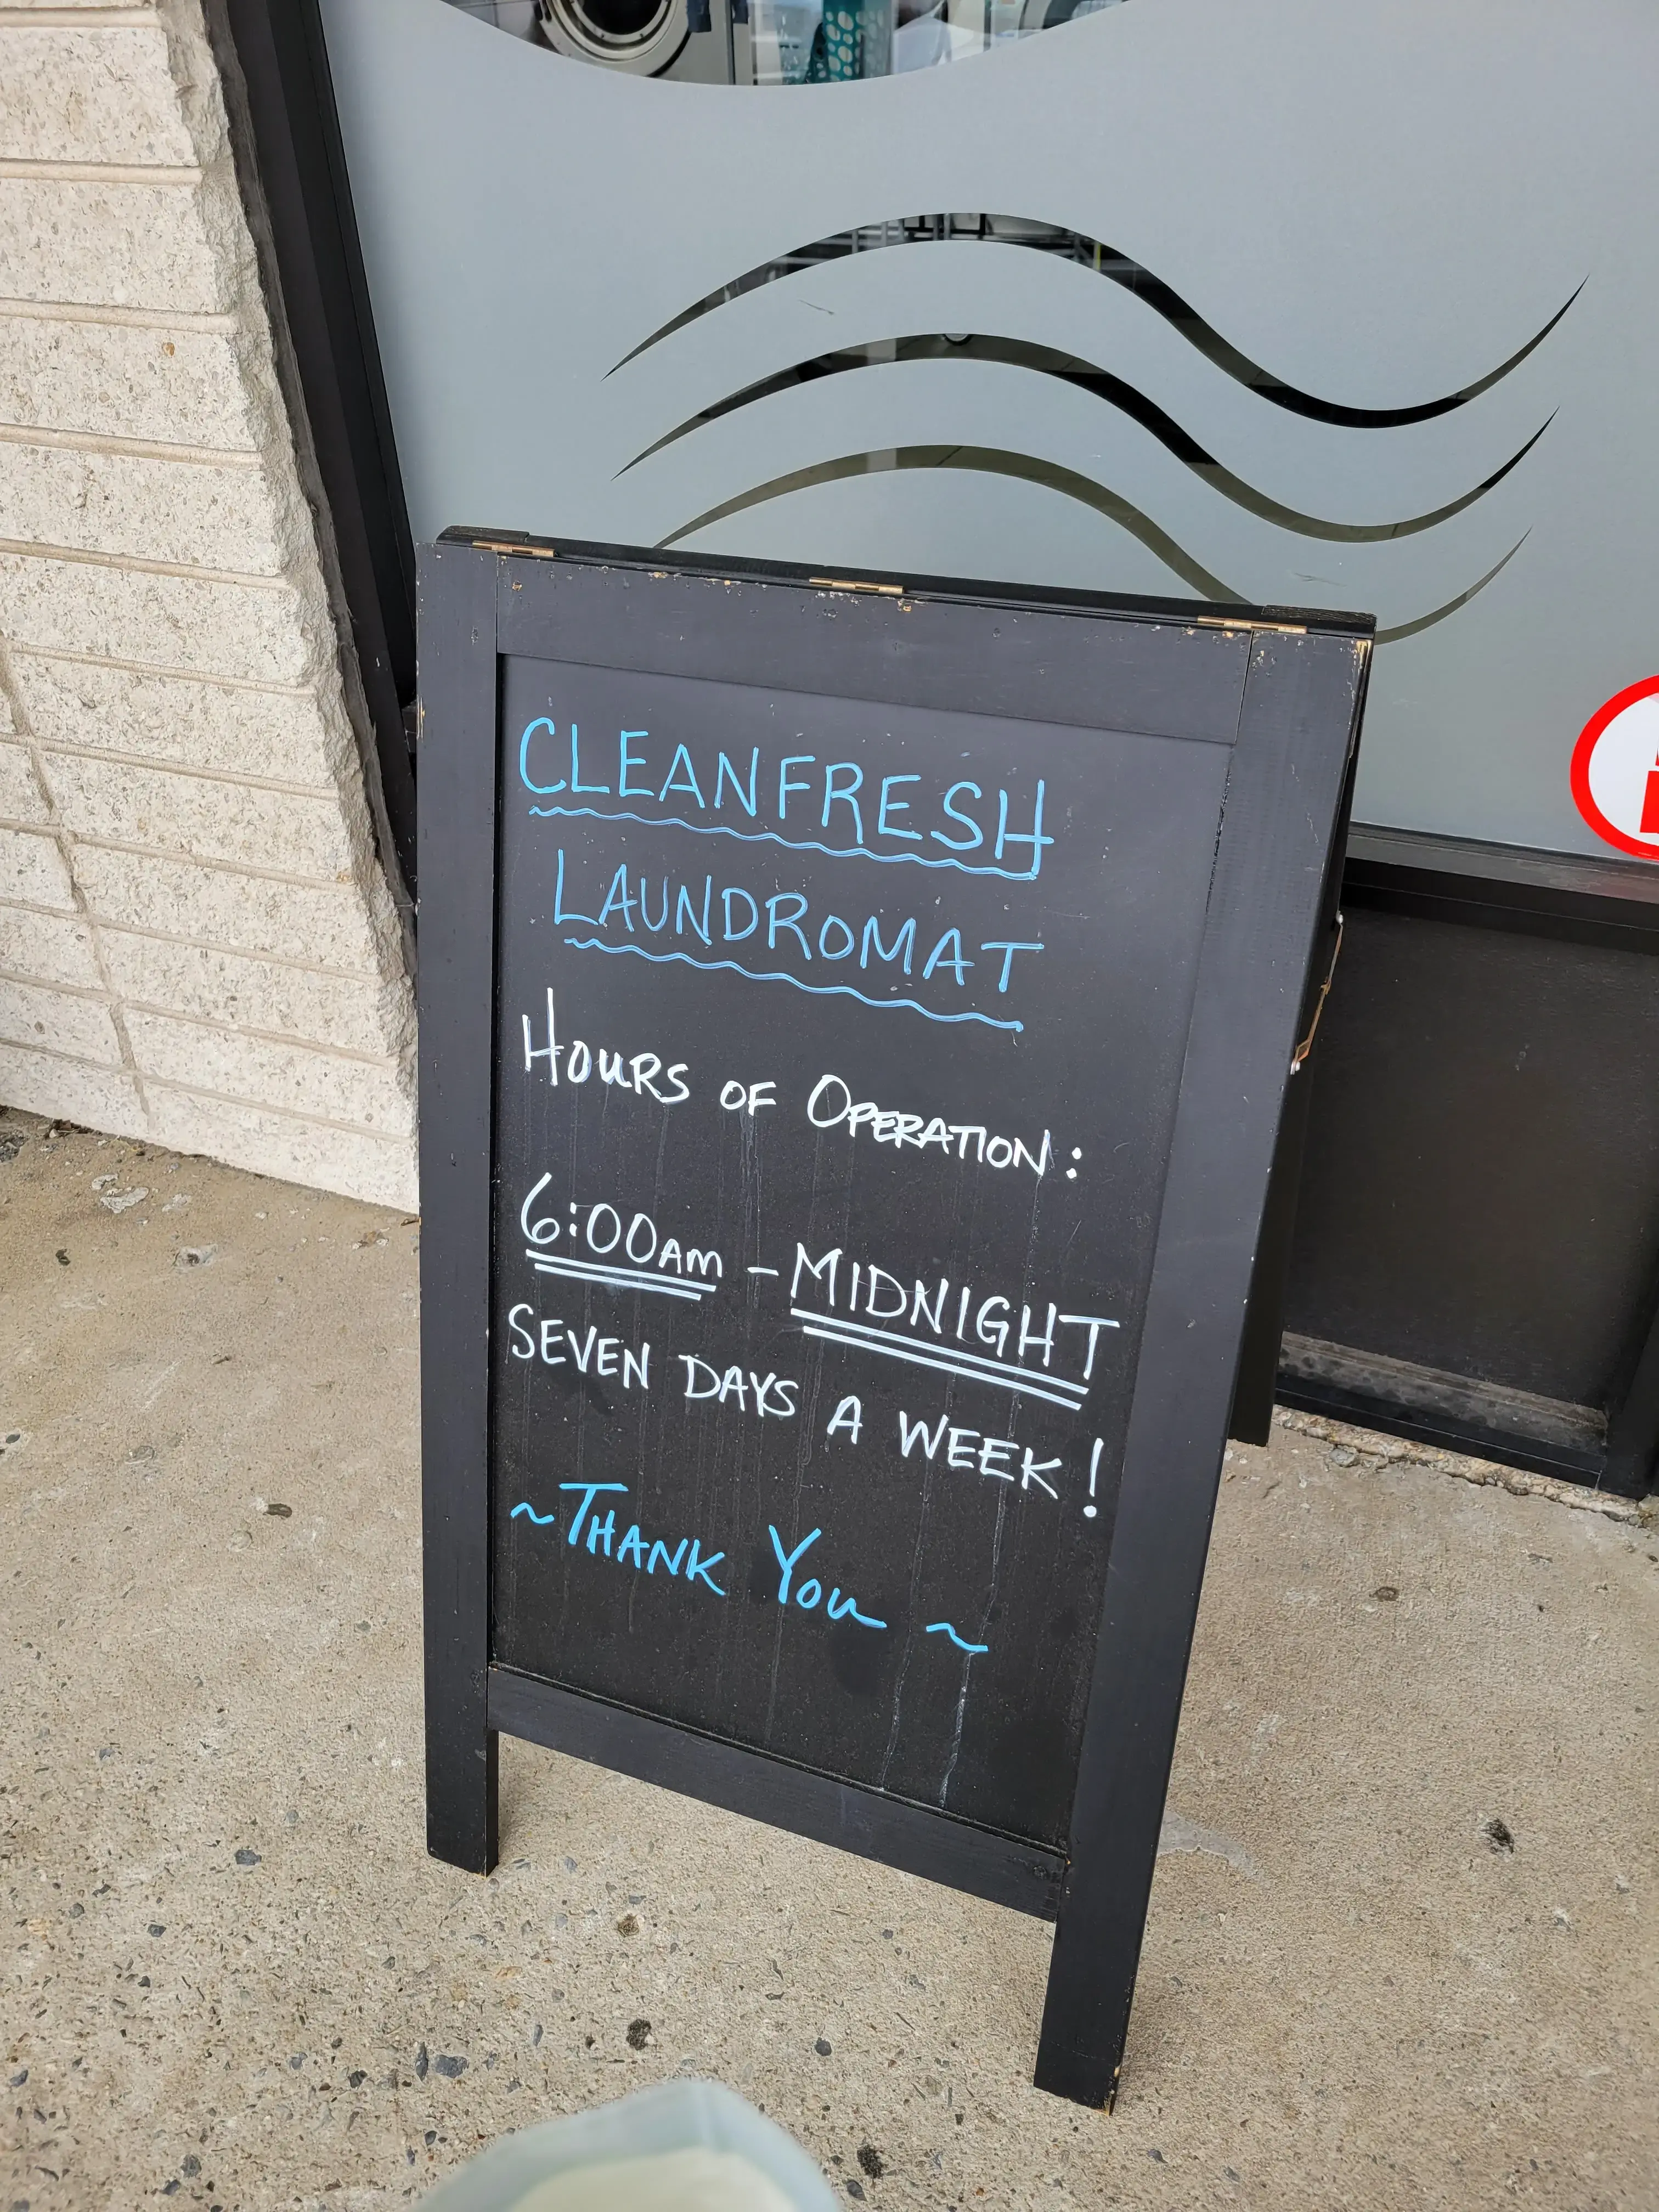 CLEANFRESH
LAUNDROMAT
HOURS OF OPERATION:
6:00AM - MIDNIGHT
SEVEN DAYS A WEEK!
~THANK YOU~